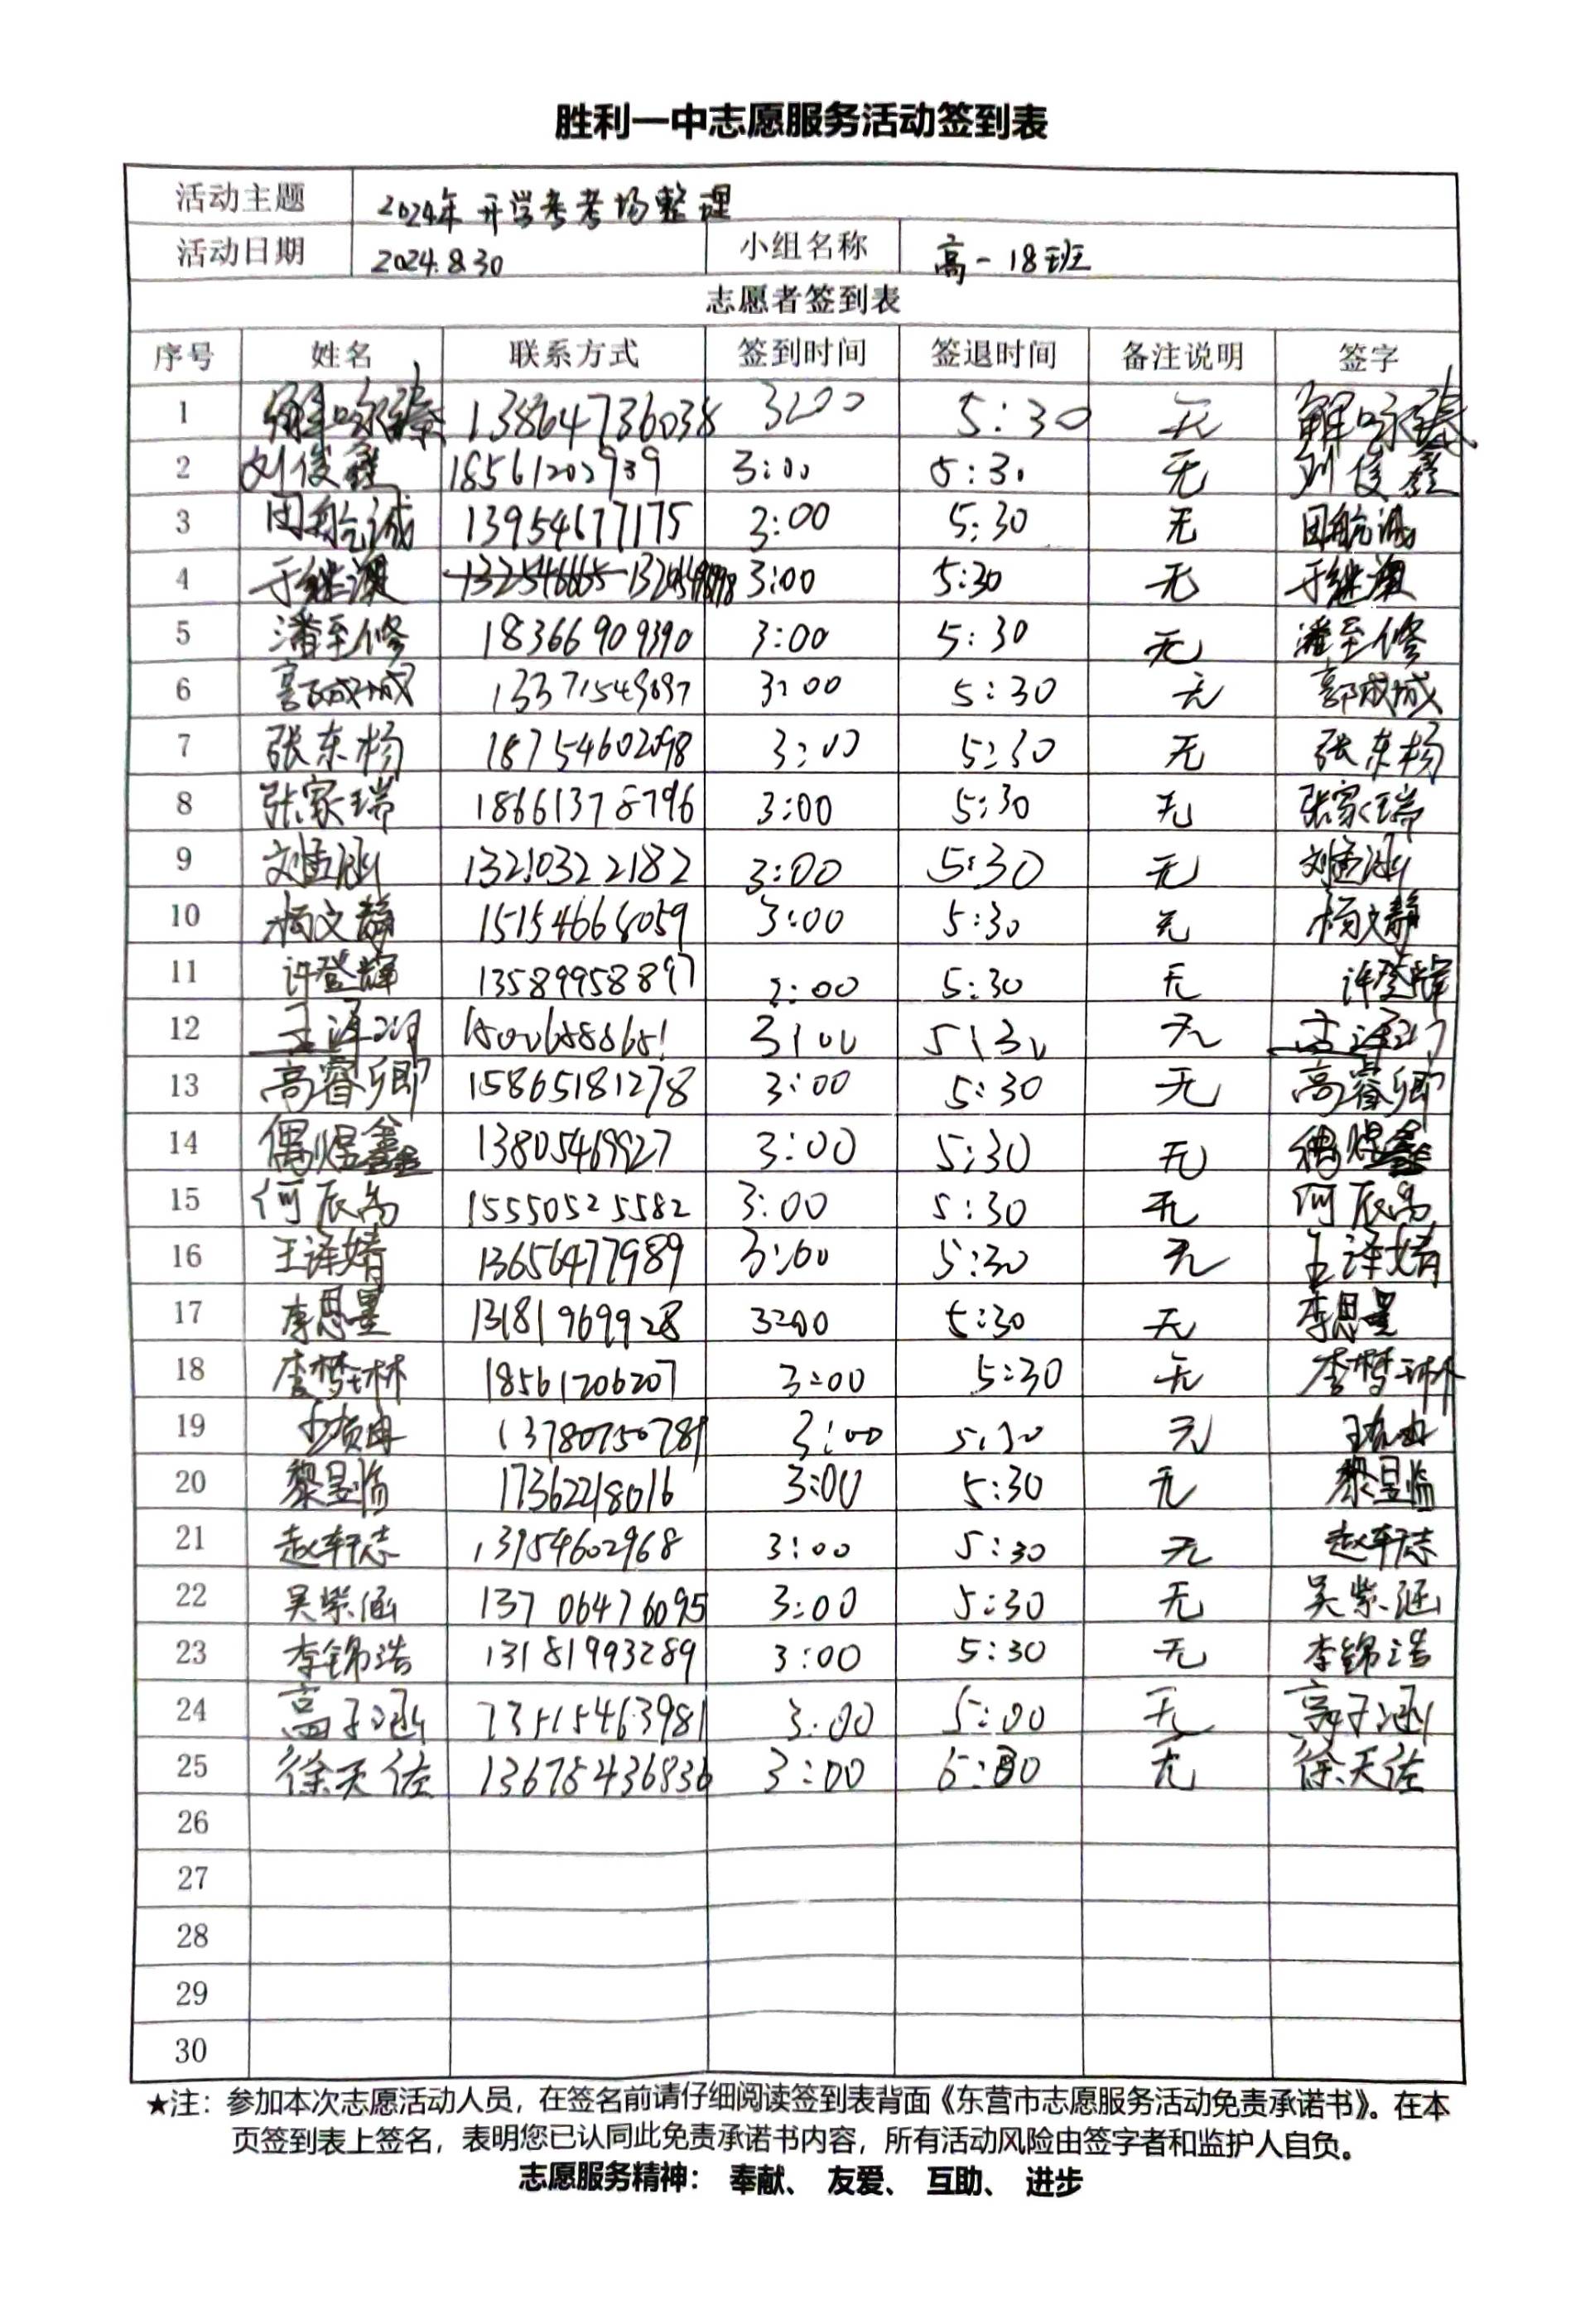 胜利一中志愿服务活动签到表
活动主题 2024年开学考考场整理
活动日期 2024.8.30 小组名称 高一18班
志愿者签到表
序号 姓名 联系方式 签到时间 签退时间 备注说明 签字
1 解咏臻 13864736038 3:00 5:30 无 解咏臻
2 刘俊鑫 18561202939 3:00 5:30 无 刘俊鑫
3 田航诚 13954677175 3:00 5:30 无 田航诚
4 于继澳 3:00 5:30 无 于继澳
5 潘至修 18366909390 3:00 5:30 无 潘至修
6 郭成城 3:00 5:30 无 郭成城
7 张东杨 18754602098 3:00 5:30 无 张东杨
8 张家瑞 18661378796 3:00 5:30 无 张家瑞
9 刘孟涵 13210322182 3:00 5:30 无 刘孟涵
10 杨文静 15154668059 3:00 5:30 无 杨文静
11 许登辉 13589958897 3:00 5:30 无 许登辉
12 3:00 5:30 无
13 高睿卿 15865181278 3:00 5:30 无 高睿卿
14 偶煜鑫 13805469927 3:00 5:30 无 偶煜鑫
15 何辰禹 15550525582 3:00 5:30 无 何辰禹
16 王译婧 13656477989 3:00 5:30 无 王译婧
17 李思墨 13181969928 3:00 5:30 无 李思墨
18 李梦琳 18561206207 3:00 5:30 无 李梦琳
19 13780750789 3:00 5:30 无
20 黎昱临 17362218016 3:00 5:30 无 黎昱临
21 赵轩志 13954602968 3:00 5:30 无 赵轩志
22 吴紫涵 13706476095 3:00 5:30 无 吴紫涵
23 李锦浩 13181993289 3:00 5:30 无 李锦浩
24 高子涵 13515463981 3:00 5:00 无 高子涵
25 徐天佐 13675436836 3:00 5:30 无 徐天佐
26
27
28
29
30
★注：参加本次志愿活动人员，在签名前请仔细阅读签到表背面《东营市志愿服务活动免责承诺书》。在本
页签到表上签名，表明您已认同此免责承诺书内容，所有活动风险由签字者和监护人自负。
志愿服务精神： 奉献、 友爱、 互助、 进步